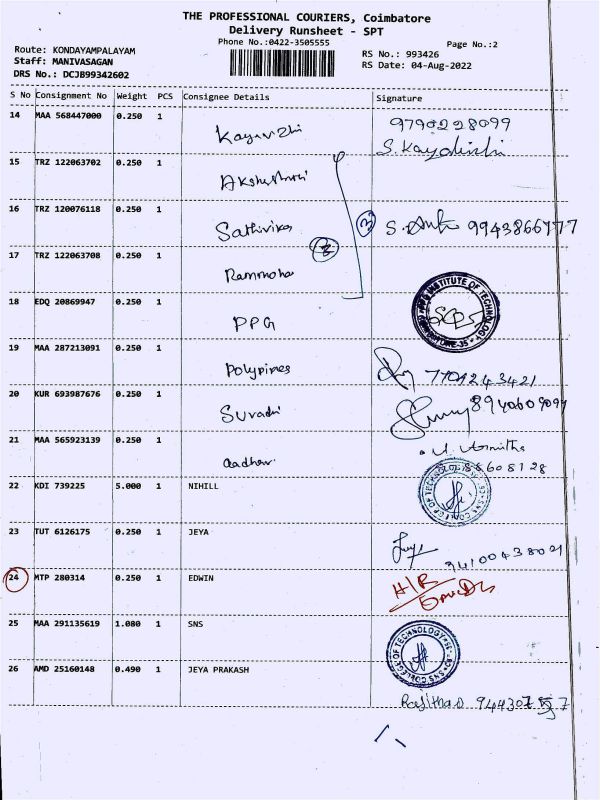 THE PROFESSIONAL COURIERS, Coimbatore
Delivery Runsheet - SPT
Phone No.:0422-3505555
Page No.:2
Route: KONDAYAMPALAYAM
Staff: MANIVASAGAN
DRS No.: DCJB99342602
RS No.: 993426
RS Date: 04-Aug-2022
S No Consignment No Weight PCS Consignee Details Signature
14 MAA 568447000 0.250 1 Kayavizhi 9790228099
15 TRZ 122063702 0.250 1
16 TRZ 120076118 0.250 1 Sathivika 3 9943866777
17 TRZ 122063708 0.250 1 Rammoha
18 EDQ 20869947 0.250 1 PPG
19 MAA 287213091 0.250 1 Polypipes 7709243421
20 KUR 693987676 0.250 1 Suvadi
21 MAA 565923139 0.250 1 Aadhav
22 KDI 739225 5.000 1 NIHILL
23 TUT 6126175 0.250 1 JEYA
24 MTP 280314 0.250 1 EDWIN H/R
25 MAA 291135619 1.080 1 SNS
26 AMD 25160148 0.490 1 JEYA PRAKASH